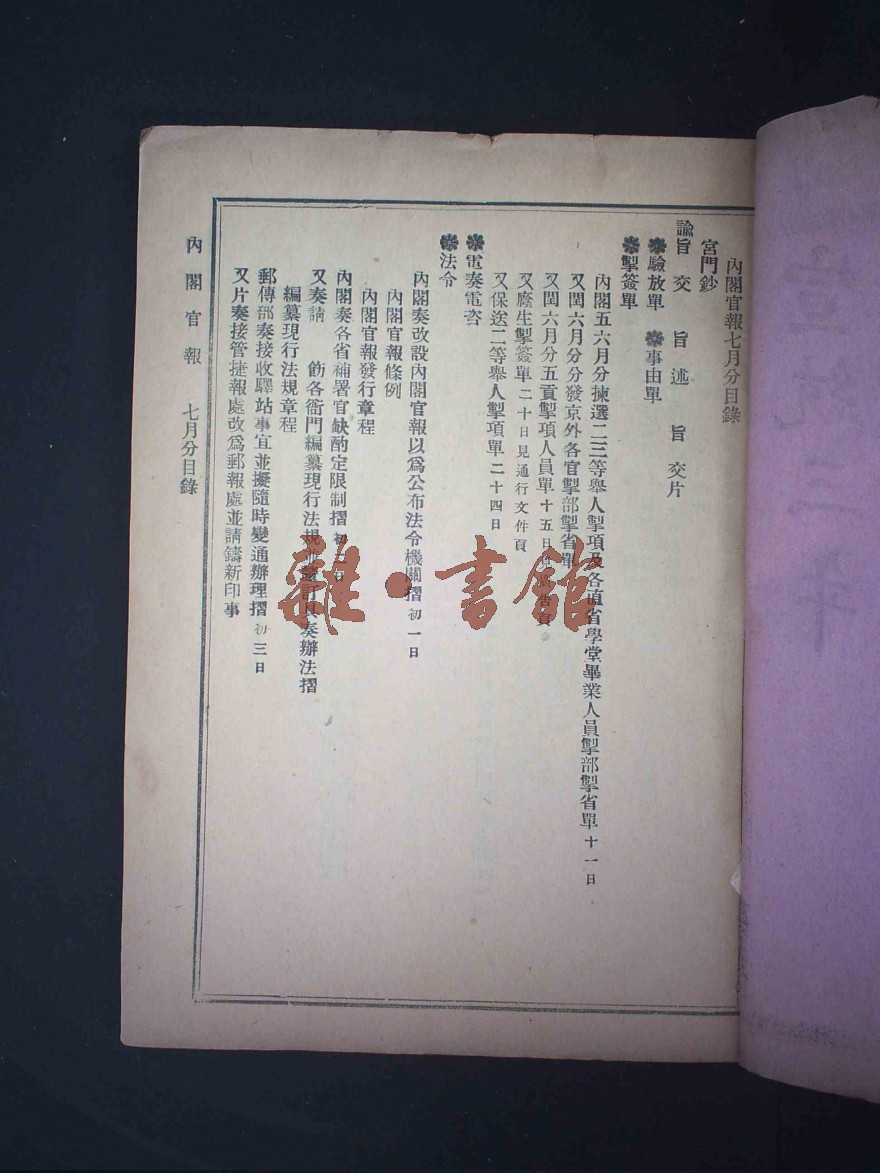 內閣官報七月分目錄
宮門鈔
諭旨 交旨 述旨 交片
驗放單 事由單
掣簽單
內閣五六月分揀選二三等舉人掣項及各直省學堂畢業人員掣部掣省單十一日
又閏六月分分發京外各官掣部掣省單
又閏六月分五貢掣項人員單十五日見 告頁
又廕生掣簽單二十日見通行文件頁
又保送二等舉人掣項單二十四日
電奏電咨
法令
內閣奏改設內閣官報以爲公布法令機關摺初一日
內閣官報條例
內閣官報發行章程
內閣奏各省補署官缺酌定限制摺初 日
又奏請 飭各衙門編纂現行法規 訂具奏辦法摺
編纂現行法規章程
郵傳部奏接收驛站事宜並擬隨時變通辦理摺初三日
又片奏接管捷報處改爲郵報處並請鑄新印事
內閣官報 七月分目錄
雜·書館